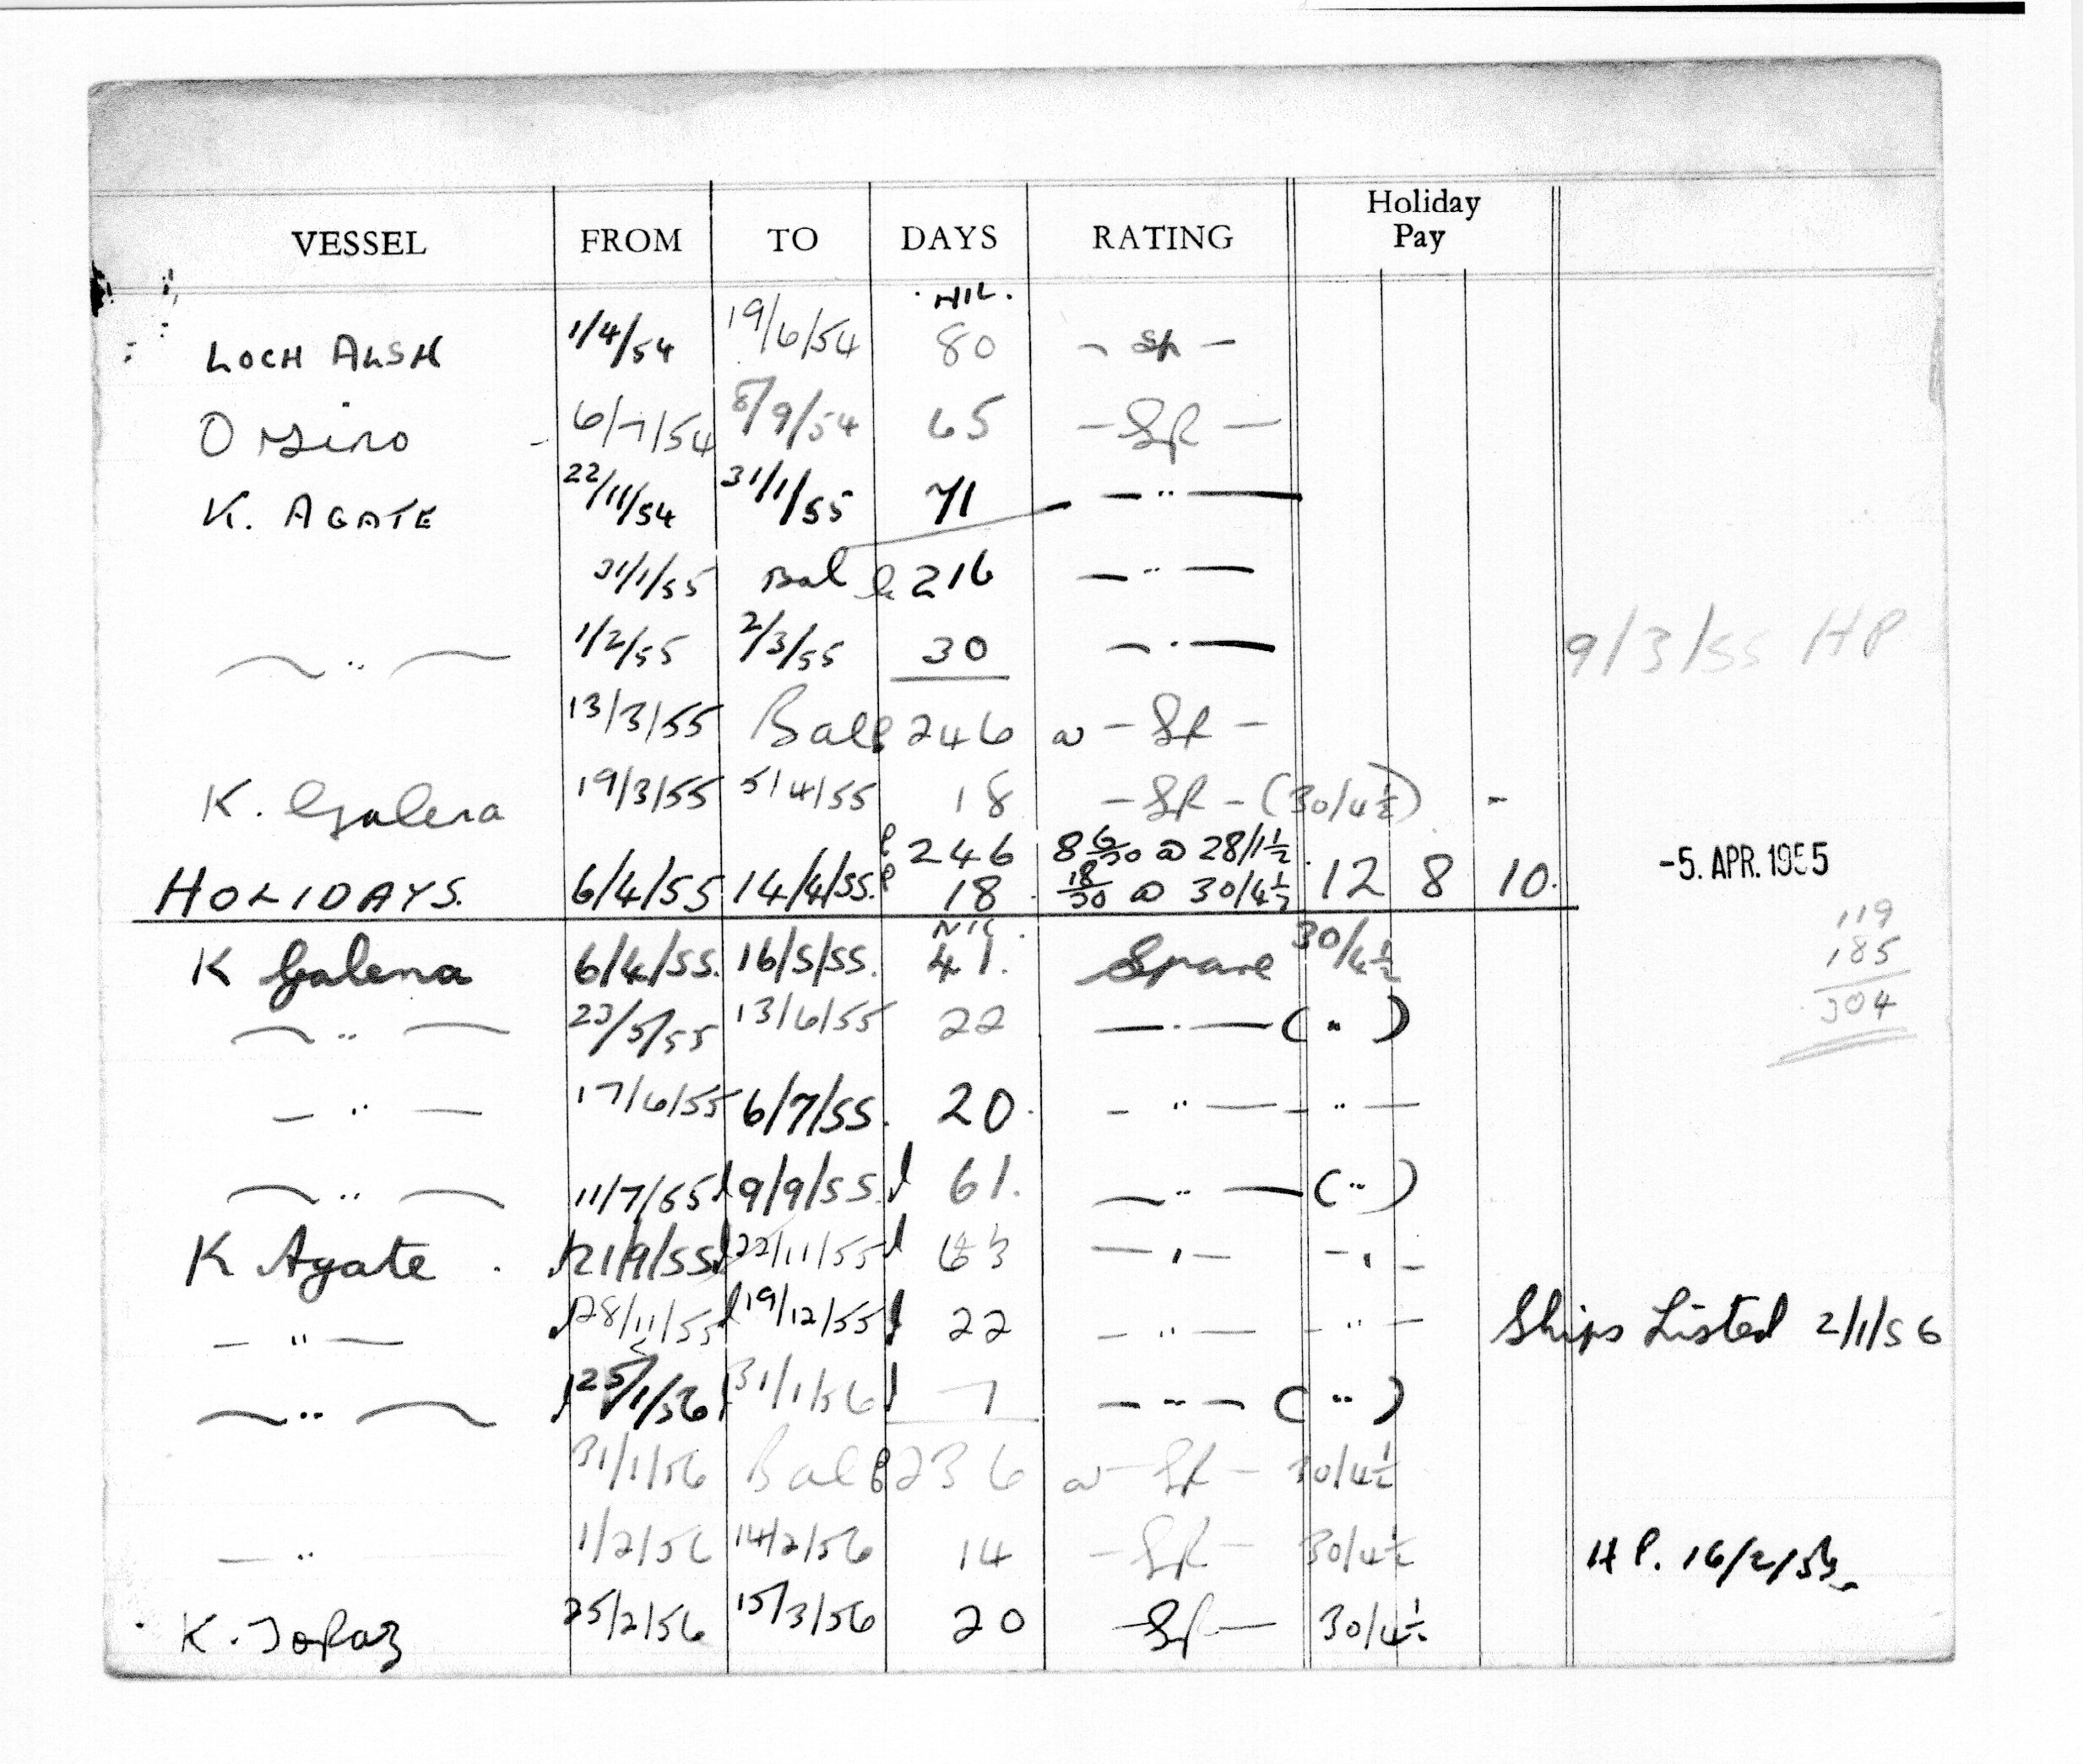 VESSEL FROM TO DAYS RATING Holiday Pay
NIL.
LOCH ALSH 1/4/54 19/6/54 80 - Sp -
O 6/7/54 8/9/54 65 - Sp -
K. AGATE 22/11/54 31/1/55 71 — " —
31/1/55 Bal 216 — " —
— " — 1/2/55 2/3/55 30 — " — 9/3/55 HP
13/3/55 Bal 246 @ - Sp -
K. Galena 19/3/55 5/4/55 18 - Sp - (30/4½) -
246 8 6/30 @ 28/1½
HOLIDAYS. 6/4/55 14/4/55. 18 18/30 @ 30/4½ 12 8 10. -5. APR. 1955
NIL.
K Galena 6/4/55. 16/5/55. 41. Spare 30/4½
119
185
304
— " — 23/5/55 13/6/55 22 — " — ( " )
— " — 17/6/55 6/7/55. 20. - " — - " —
— " — 11/7/55 9/9/55. 61. — " — ( " )
K Agate. 21/9/55 22/11/55 63 — " — - " -
— " — 28/11/55 19/12/55 22 - " — - " — Ships Listed 2/1/56
— " — 25/1/56 31/1/56 7 — " — ( " )
31/1/56 Bal 236 @ - Sp - 30/4½
— " 1/2/56 14/2/56 14 - Sp - 30/4½ H P. 16/2/56
K. Topaz 25/2/56 15/3/56 20 - Sp - 30/4½